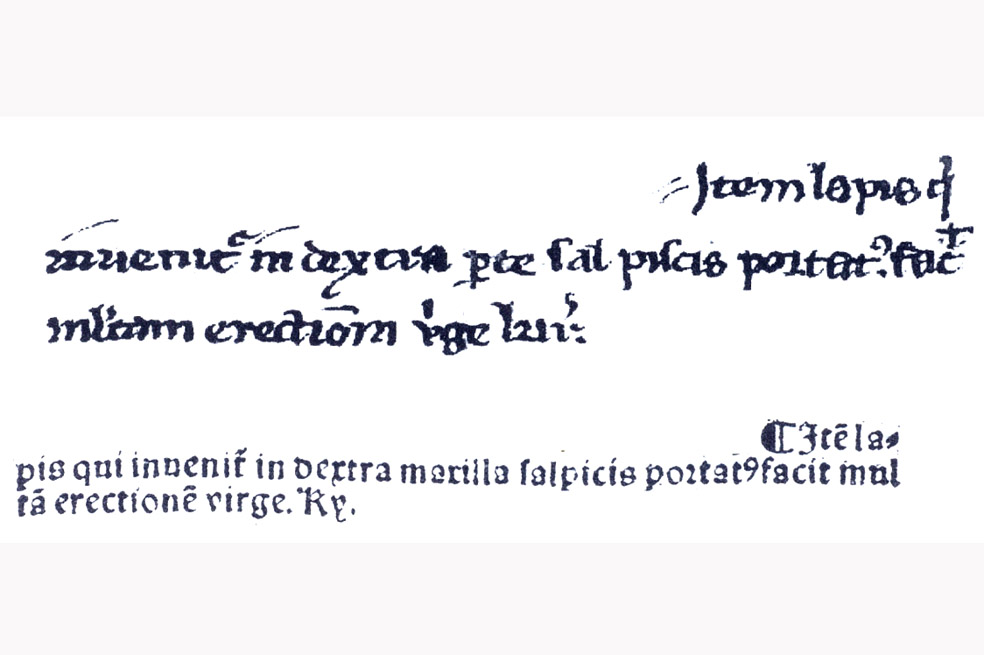 Item lapis q̄
inuenit᷒ in dextra ꝑte sal piscis portat⁹ facit
ml'tam erectiōm v'ge kyr':
¶ Itē la⸗
pis qui inuenit᷒ in dextra maxilla salpicis portat⁹ facit mul
tā erectionē virge. Ky.